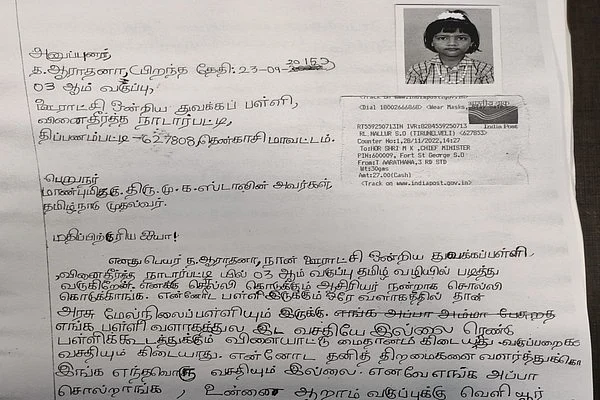 அனுப்புனர்,
த.ஆராதனா, (பிறந்த தேதி: 23-09-2015)
03 ஆம் வகுப்பு,
ஊராட்சி ஒன்றிய துவக்கப் பள்ளி,
வினைதீர்த்த நாடார்பட்டி,
திப்பணம்பட்டி -627808, தென்காசி மாவட்டம்.
பெறுநர்
மாண்புமிகு. திரு. மு. க. ஸ்டாலின் அவர்கள்,
தமிழ்நாடு முதல்வர்.
மதிப்பிற்குரிய ஐயா!
எனது பெயர் த.ஆராதனா, நான் ஊராட்சி ஒன்றிய துவக்கப்பள்ளி
,வினைதீர்த்த நாடார்பட்டி யில் 03 ஆம் வகுப்பு தமிழ் வழியில் படித்து
வருகிறேன். எனக்கு சொல்லி கொடுக்கும் ஆசிரியர் நன்றாக சொல்லி
கொடுக்காங்க. என்னோட பள்ளி இருக்கும் ஒரே வளாகத்தில் தான்
அரசு மேல்நிலைப்பள்ளியும் இருக்கு. எங்க அப்பா அம்மா
எங்க பள்ளி வளாகத்துல இட வசதியே இல்லை ரெண்டு
பள்ளிக்கூடத்துக்கும் விளையாட்டு மைதானம் கிடையாது. வகுப்பறைக்
வசதியும் கிடையாது. என்னோட தனித் திறமைகளை வளர்த்துக்கொ
இங்க எந்தவொரு வசதியும் இல்லை. எனவே எங்க அப்பா
சொல்றாங்க , உன்னை ஆறாம் வகுப்புக்கு வெளியூர்
<Track on www.indiapost.gov.in>
<Dial 18002666868> <Wear Masks,
India Post
RT559250713IN IVR:8284559250713
RL NALLUR S.O (TIRUNELVELI) <627853>
Counter No:1,28/11/2022,14:27
To:HOR SHRI M K ,CHIEF MINISTER
PIN:600009, Fort St George S.O
From:T AARATHANA,3 RD STD
Wt:30gms
Amt:27.00(Cash)
<Track on www.indiapost.gov.in>